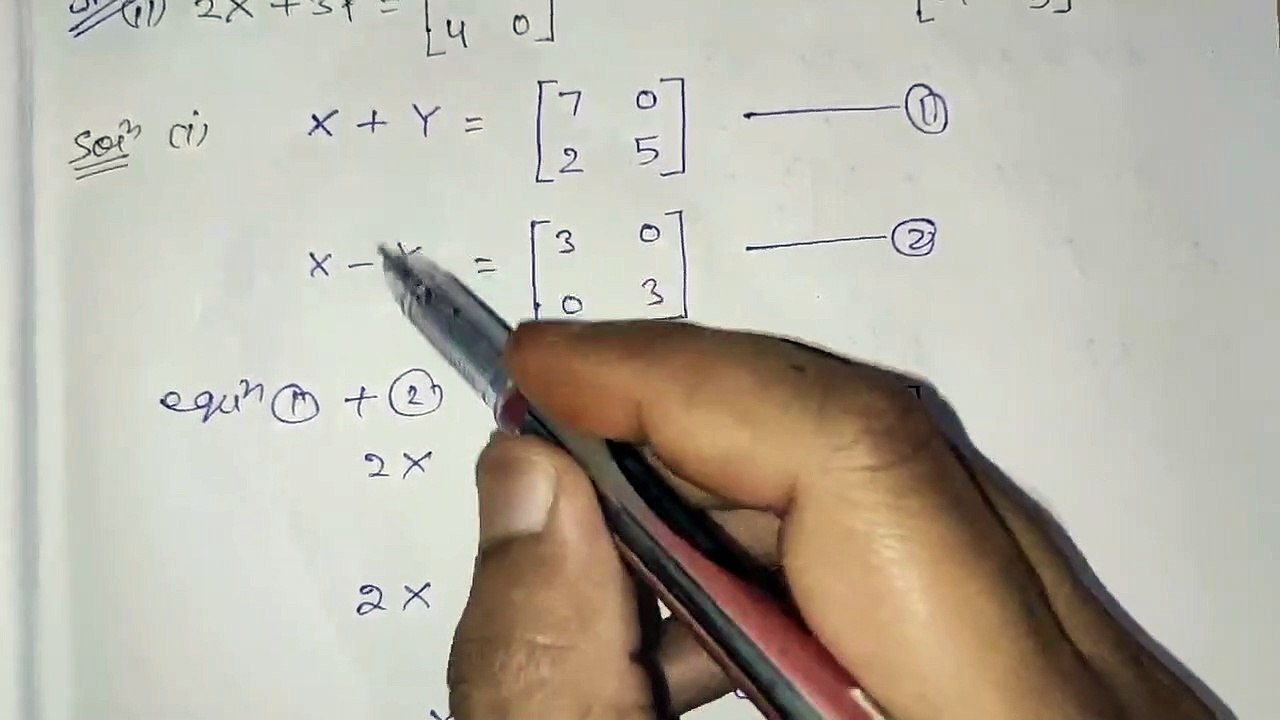 (ii) 2X + 3Y = [
[4 0]
Soiⁿ (i) X + Y = [7 0 —— ①
2 5]
X - Y = [3 0 —— ②
0 3]
equiⁿ ① + ②
2X
2X